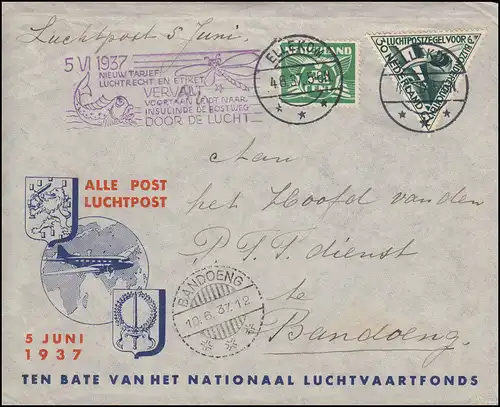 Luchtpost 5 Juni.
5 VI 1937
NIEUW TARIEF!
LUCHTRECHT EN ETIKET
VERVALT
VOORTAAN LEIDT NAAR
INSULINDE DE POSTWEG
DOOR DE LUCHT
NEDERLAND
4.6.37
LUCHTPOSTZEGEL VOOR
NEDERLAND
Aan
het Hoofd van den
P.T.T. dienst
te
Bandoeng.
ALLE POST
LUCHTPOST
BANDOENG
10.6.37.12
5 JUNI
1937
TEN BATE VAN HET NATIONAAL LUCHTVAARTFONDS